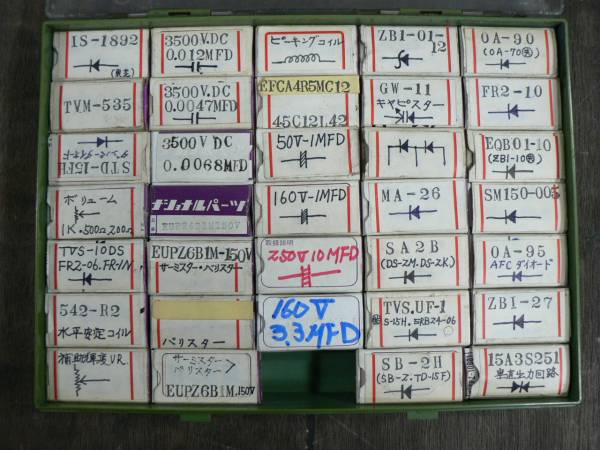 IS-1892
(東芝)
3500V.DC
0.012MFD
ピーキングコイル
ZB1-01-
12
0A-90
(0A-70㊹)
TVM-535
3500V.DC
0.0047MFD
EFCA4R5MC12
45C121.42
GW-11
キャピスター
FR2-10
STD-15FH
3500V DC
0.0068MFD
50V-1MFD
EQB01-10
ボリューム
1K.500Ω,200Ω
ナショナルパーツ
160V-1MFD
MA-26
SM150-005
TVS-10DS
FR2-06.FR-1N
EUPZ6B1M-150V
サーミスター・バリスター
取扱説明
250V10MFD
SA2B
(DS-2M.DS-2K)
0A-95
AFCダイオード
542-R2
水平安定コイル
バリスター
160V
3.3MFD
TVS.UF-1
ZB1-27
サーミスター
バリスター
EUPZ6B1M.150V
SB-2H
(SB-2.TD-15F)
15A3S251
垂直出力回路